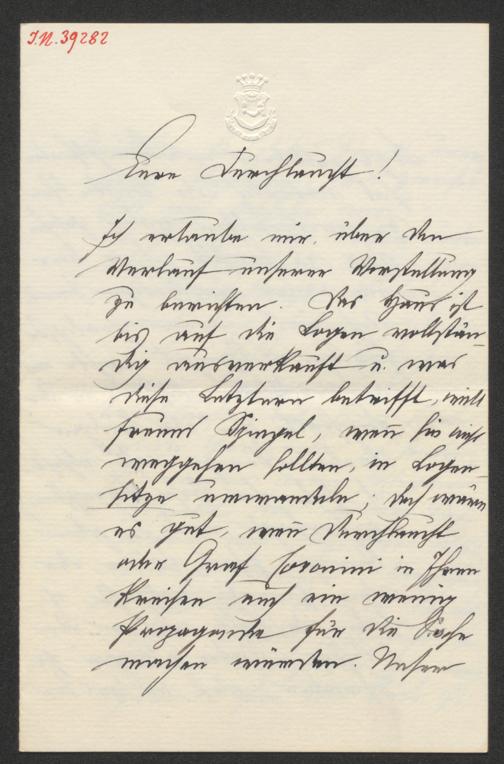 J.N. 39282
Eure Durchlaucht!
Ich erlaube mir, über den
Verlauf unserer Vorstellung
zu berichten. Das Haus ist
bis auf die Logen vollstän
dig ausverkauft u. was
diese Letztern betrifft, will
Spingel, wen̄ sie nicht
weggehen sollten, in Logen
sitze umwandeln; doch wäre
es gut, wen̄ Durchlaucht
oder Graf Coronini in Ihren
Kreisen auch ein wenig
Propaganda für die Sache
machen würden. Unser